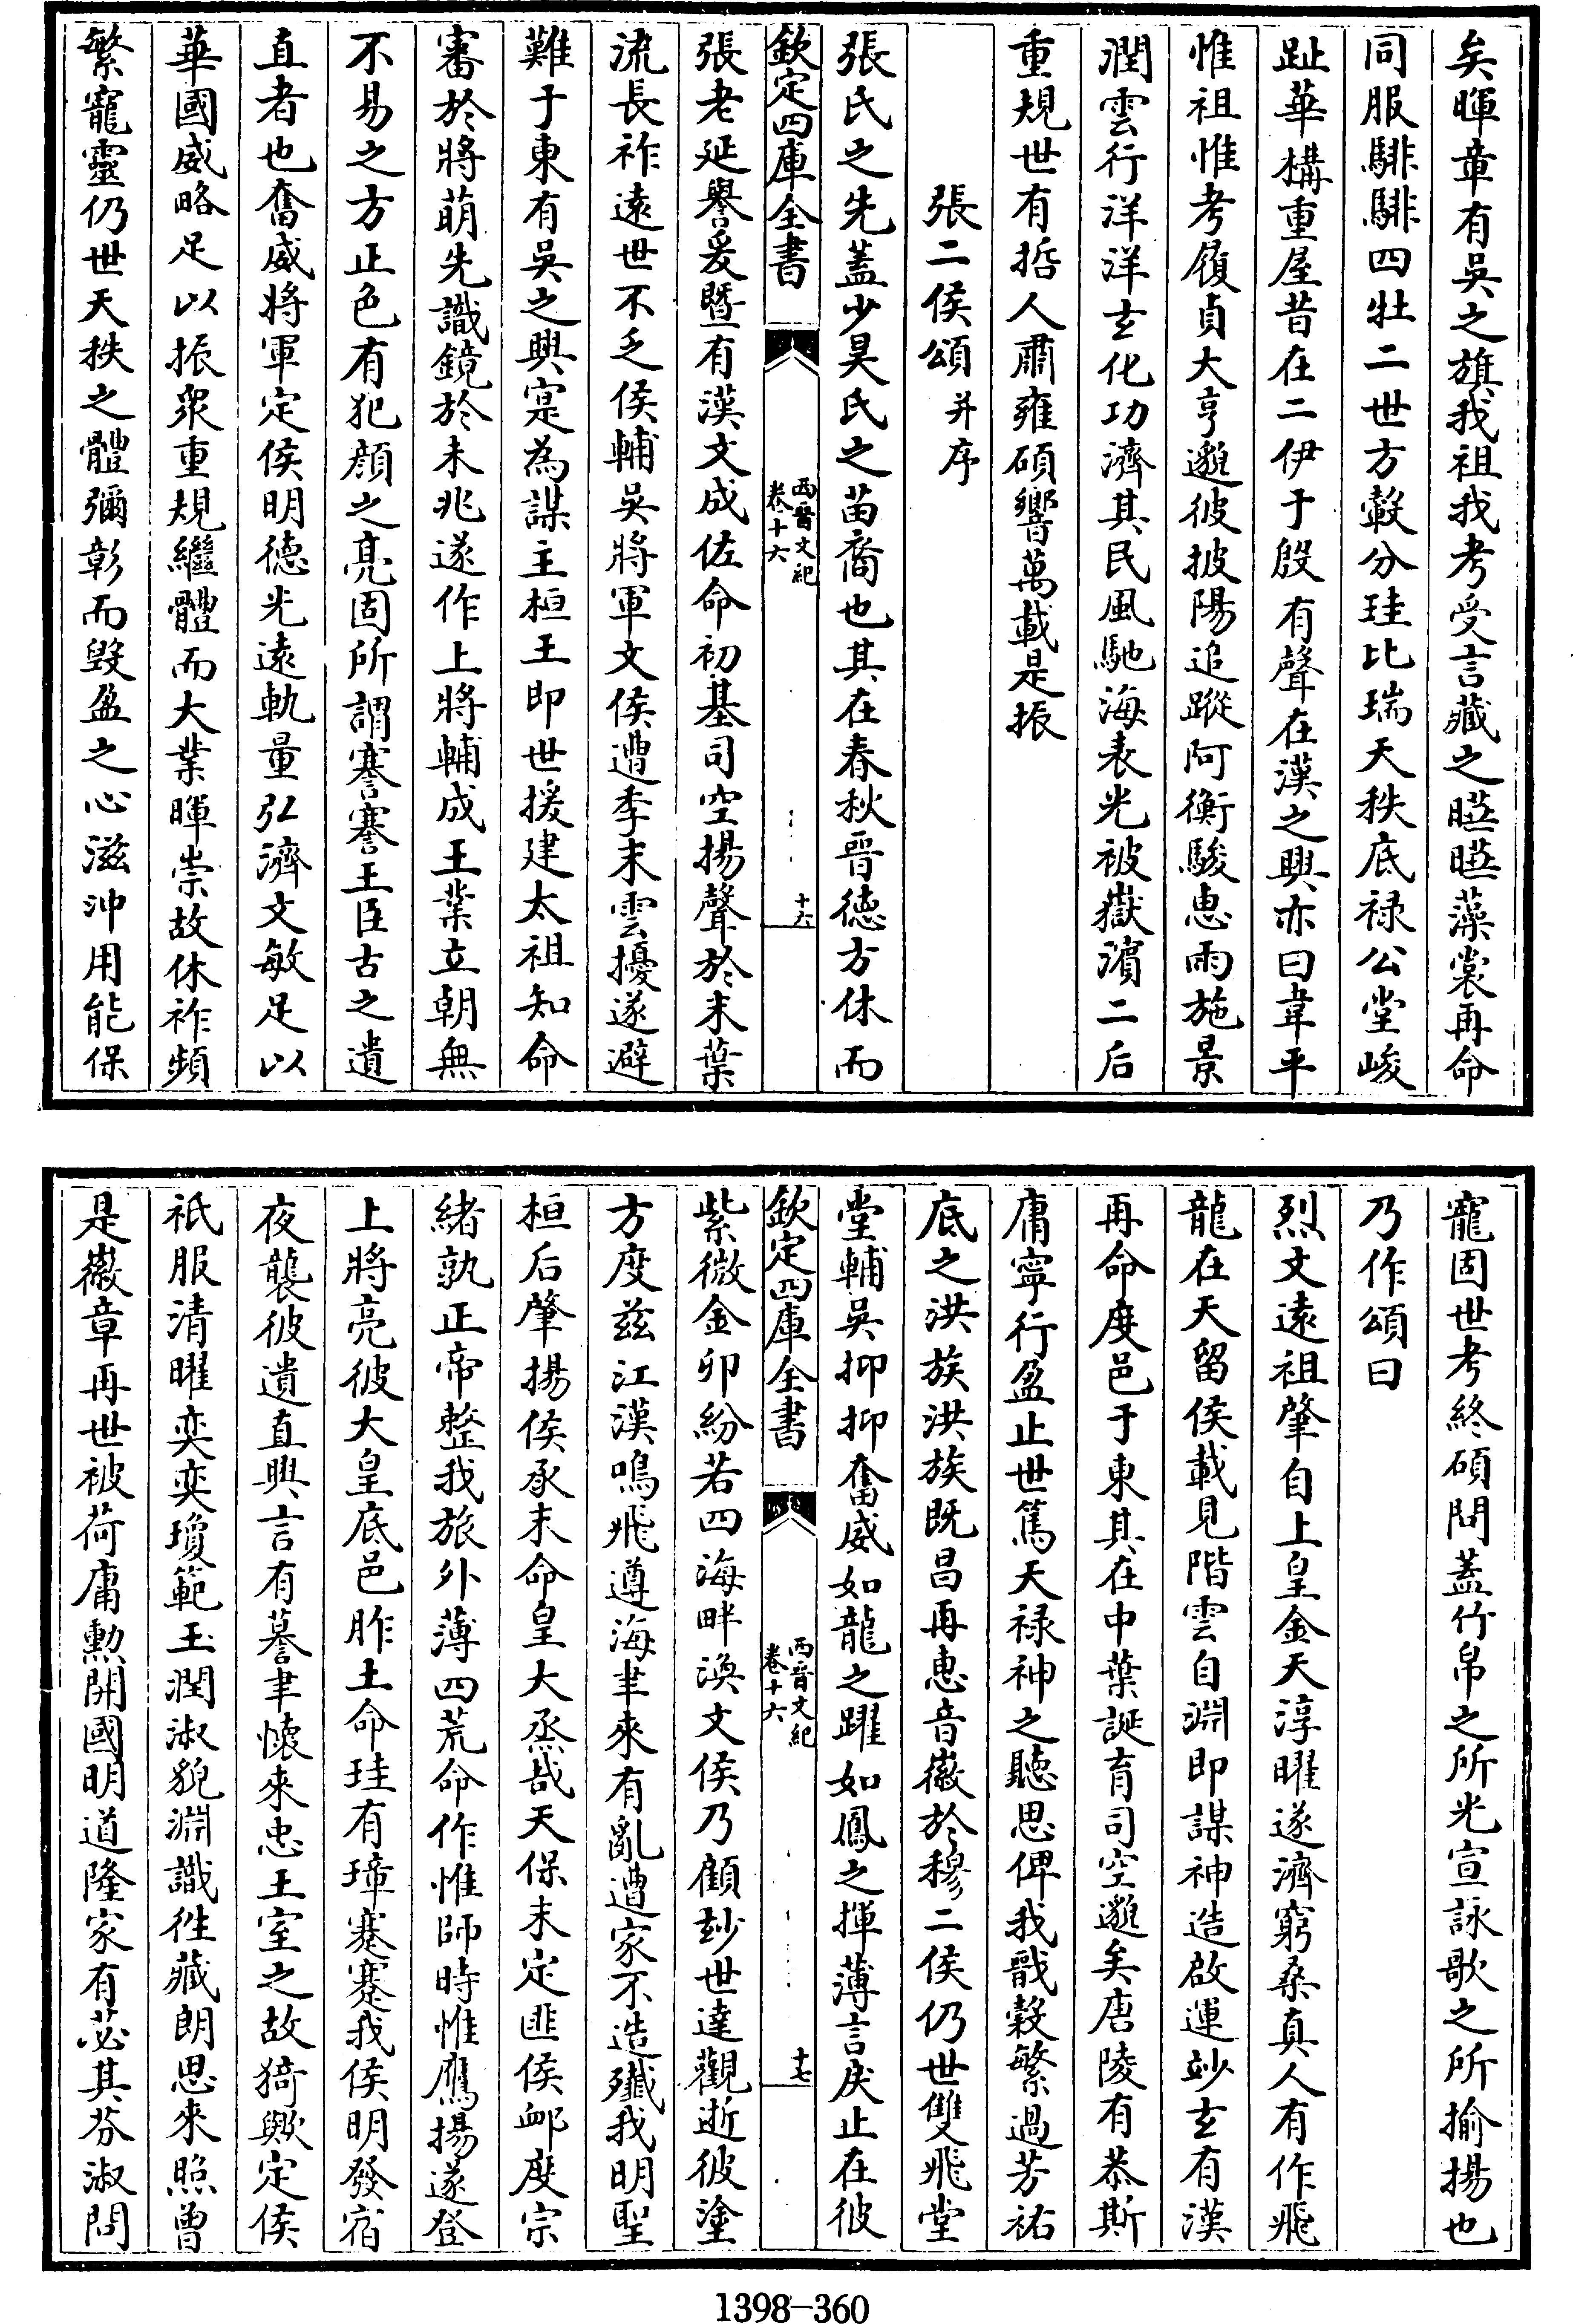 矣暉章有吳之旗我祖我考受言藏之曣曣藻裳再命
同服騑騑四牡二世方轂分珪比瑞天秩底禄公堂峻
趾華構重屋昔在二伊于殷有聲在漢之興亦曰韋平
惟祖惟考履貞大亨邈彼披陽追蹤阿衡駿惠雨施景
潤雲行洋洋玄化功濟其民風馳海表光被嶽濱二后
重規世有哲人肅雍碩響萬載是振
張二侯頌并序
張氏之先蓋少昊氏之苗裔也其在春秋晉德方休而
欽定四庫全書
西晉文紀
卷十六
十六
張老延譽爰暨有漢文成佐命初基司空揚聲於末葉
流長祚遠世不乏侯輔吳將軍文侯遭季末雲擾遂避
難于東有吳之興寔為謀主桓王即世援建太祖知命
審於將萌先識鏡於未兆遂作上將輔成王業立朝無
不易之方正色有犯顔之亮固所謂謇謇王臣古之遺
直者也奮威將軍定侯明德光遠軌量弘濟文敏足以
華國威略足以振衆重規繼體而大業暉崇故休祚頻
繁寵靈仍世天秩之體彌彰而毀盈之心滋沖用能保
寵固世考終碩問蓋竹帛之所光宣詠歌之所揄揚也
乃作頌曰
烈文遠祖肇自上皇金天淳曜遂濟窮桑真人有作飛
龍在天留侯載見階雲自淵即謀神造啟運妙玄有漢
再命度邑于東其在中葉誕育司空邈矣唐陵有恭斯
庸寧行盈止世篤天禄神之聽思俾我戩穀繁過芬祐
底之洪族洪族既昌再惠音徽於穆二侯仍世雙飛堂
堂輔吳抑抑奮威如龍之躍如鳳之揮薄言戾止在彼
欽定四庫全書
西晉文紀
卷十六
十七
紫微金卯紛若四海畔渙文侯乃顧玅世達觀逝彼塗
方度兹江漢鳴飛遵海聿來有亂遭家不造殲我明聖
桓后肇揚侯承末命皇大烝哉天保未定匪侯卹度宗
緒孰正帝整我旅外薄四荒命作惟師時惟鷹揚遂登
上將亮彼大皇底邑胙土命珪有璋蹇蹇我侯明發宿
夜襲彼遺直興言有謩聿懷來忠王室之故猗歟定侯
祇服清曜奕奕瓊範玉潤淑貌淵識徃藏朗思來照曾
是徽章再世被荷庸勲開國明道隆家有苾其芬淑問
1398-360